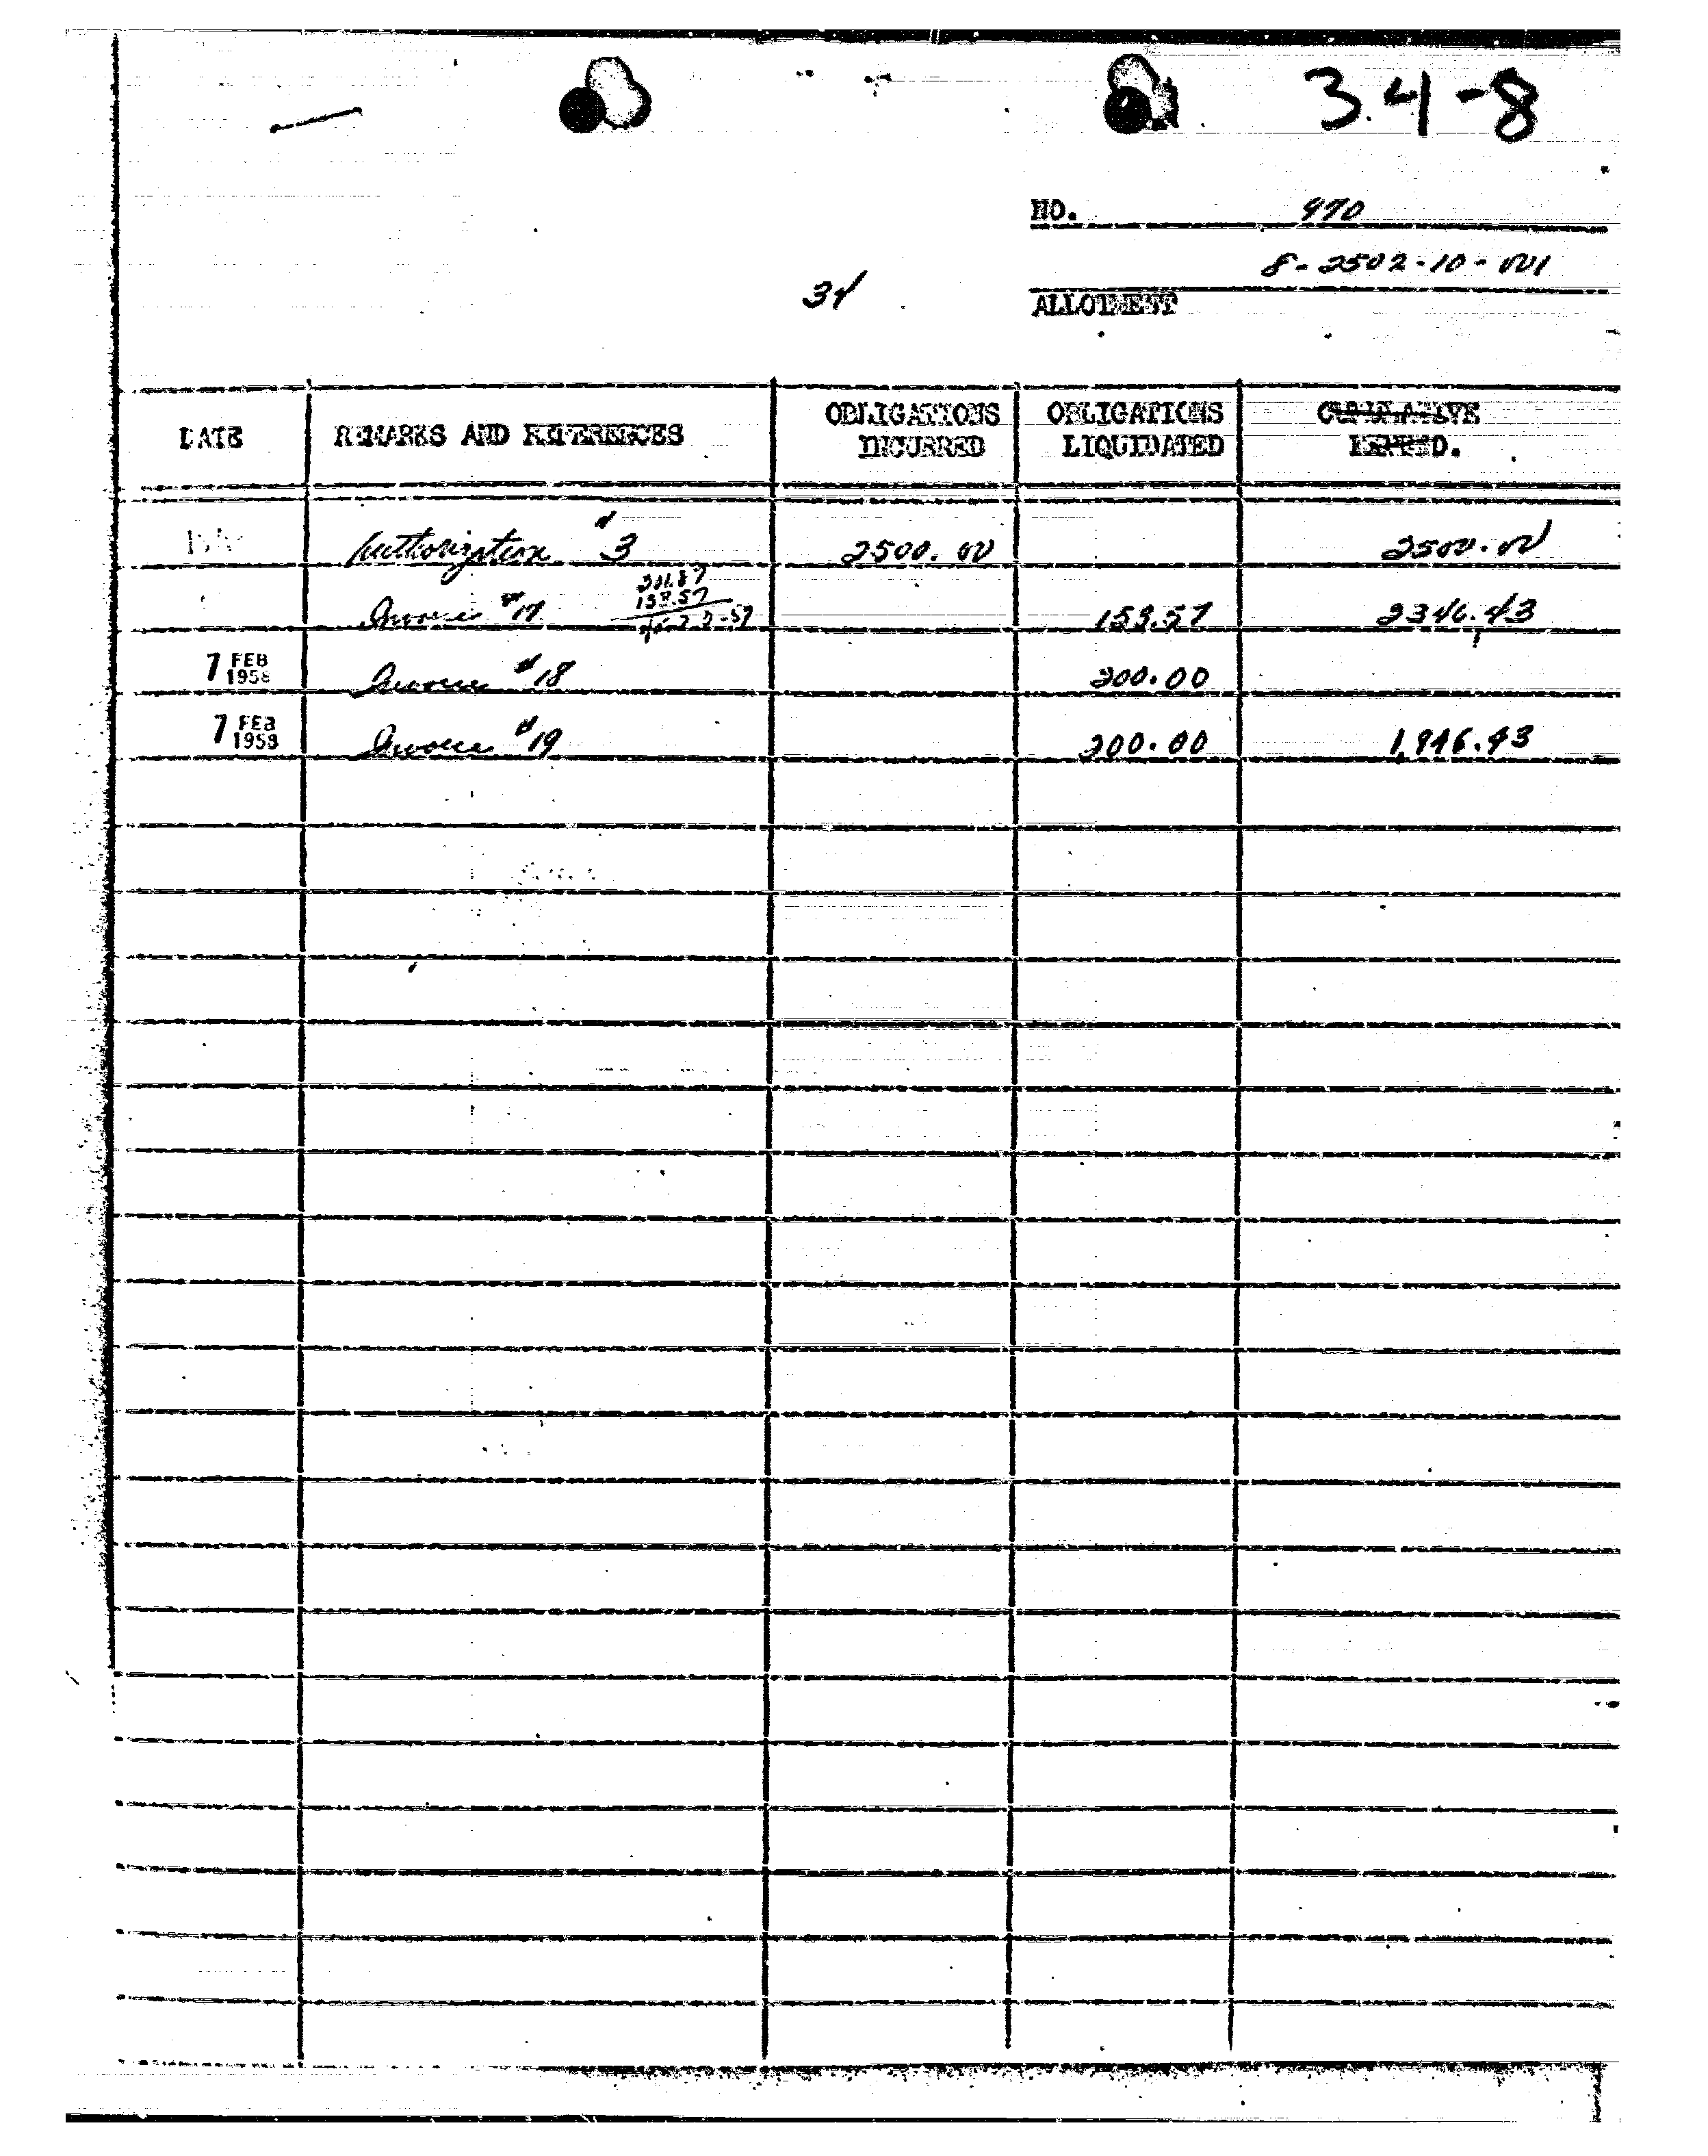 34-8
NO. 970
8-2502-10-001
34
ALLOTMENT
DATE REMARKS AND REFERENCES OBLIGATIONS INCURRED OBLIGATIONS LIQUIDATED CUMULATIVE
Authorization #3 2500.00 2500.00
Invoice #17 153.57 2346.43
7 FEB 1958 Invoice #18 200.00
7 FEB 1958 Invoice #19 200.00 1,946.43